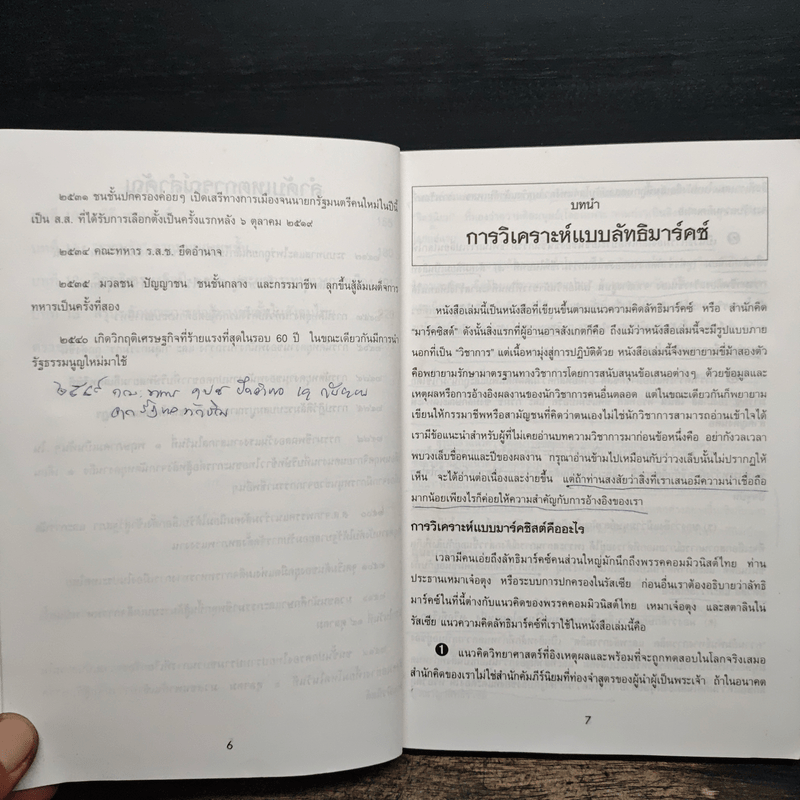 ๒๕๓๑ ชนชั้นปกครองค่อยๆ เปิดเสรีทางการเมืองจนนายกรัฐมนตรีคนใหม่ในปีนี้
เป็น ส.ส. ที่ได้รับการเลือกตั้งเป็นครั้งแรกหลัง ๖ ตุลาคม ๒๕๑๙
๒๕๓๔ คณะทหาร ร.ส.ช. ยึดอำนาจ
๒๕๓๕ มวลชน ปัญญาชน ชนชั้นกลาง และกรรมาชีพ ลุกขึ้นสู้ล้มเผด็จการ
ทหารเป็นครั้งที่สอง
๒๕๔๐ เกิดวิกฤติเศรษฐกิจที่ร้ายแรงที่สุดในรอบ 60 ปี ในขณะเดียวกันมีการนำ
รัฐธรรมนูญใหม่มาใช้
๒๕๔๙
6
บทนำ
การวิเคราะห์แบบลัทธิมาร์คซ์
หนังสือเล่มนี้เป็นหนังสือที่เขียนขึ้นตามแนวความคิดลัทธิมาร์คซ์ หรือ สำนักคิด
"มาร์คซิสต์" ดังนั้นสิ่งแรกที่ผู้อ่านอาจสังเกตก็คือ ถึงแม้ว่าหนังสือเล่มนี้จะมีรูปแบบภาย
นอกที่เป็น "วิชาการ" แต่เนื้อหามุ่งสู่การปฏิบัติด้วย หนังสือเล่มนี้จึงพยายามขี่ม้าสองตัว
คือพยายามรักษามาตรฐานทางวิชาการโดยการสนับสนุนข้อเสนอต่างๆ ด้วยข้อมูลและ
เหตุผลหรือการอ้างอิงผลงานของนักวิชาการคนอื่นตลอด แต่ในขณะเดียวกันก็พยายาม
เขียนให้กรรมาชีพหรือสามัญชนที่คิดว่าตนเองไม่ใช่นักวิชาการสามารถอ่านเข้าใจได้
เรามีข้อแนะนำสำหรับผู้ที่ไม่เคยอ่านบทความวิชาการมาก่อนข้อหนึ่งคือ อย่ากังวลเวลา
พบวงเล็บชื่อคนและปีของผลงาน กรุณาอ่านข้ามไปเหมือนกับว่าวงเล็บนั้นไม่ปรากฏให้
เห็น จะได้อ่านต่อเนื่องและง่ายขึ้น แต่ถ้าท่านสงสัยว่าสิ่งที่เราเสนอมีความน่าเชื่อถือ
มากน้อยเพียงไรก็ค่อยให้ความสำคัญกับการอ้างอิงของเรา
การวิเคราะห์แบบมาร์คซิสต์คืออะไร
เวลามีคนเอ่ยถึงลัทธิมาร์คซ์คนส่วนใหญ่มักนึกถึงพรรคคอมมิวนิสต์ไทย ท่าน
ประธานเหมาเจ๋อตุง หรือระบบการปกครองในรัสเซีย ก่อนอื่นเราต้องอธิบายว่าลัทธิ
มาร์คซ์ในที่นี้ต่างกับแนวคิดของพรรคคอมมิวนิสต์ไทย เหมาเจ๋อตุง และสตาลินใน
รัสเซีย แนวความคิดลัทธิมาร์คซ์ที่เราใช้ในหนังสือเล่มนี้คือ
❶ แนวคิดวิทยาศาสตร์ที่อิงเหตุผลและพร้อมที่จะถูกทดสอบในโลกจริงเสมอ
สำนักคิดของเราไม่ใช่สำนักคัมภีร์นิยมที่ท่องจำสูตรของผู้นำผู้เป็นพระเจ้า ถ้าในอนาคต
7